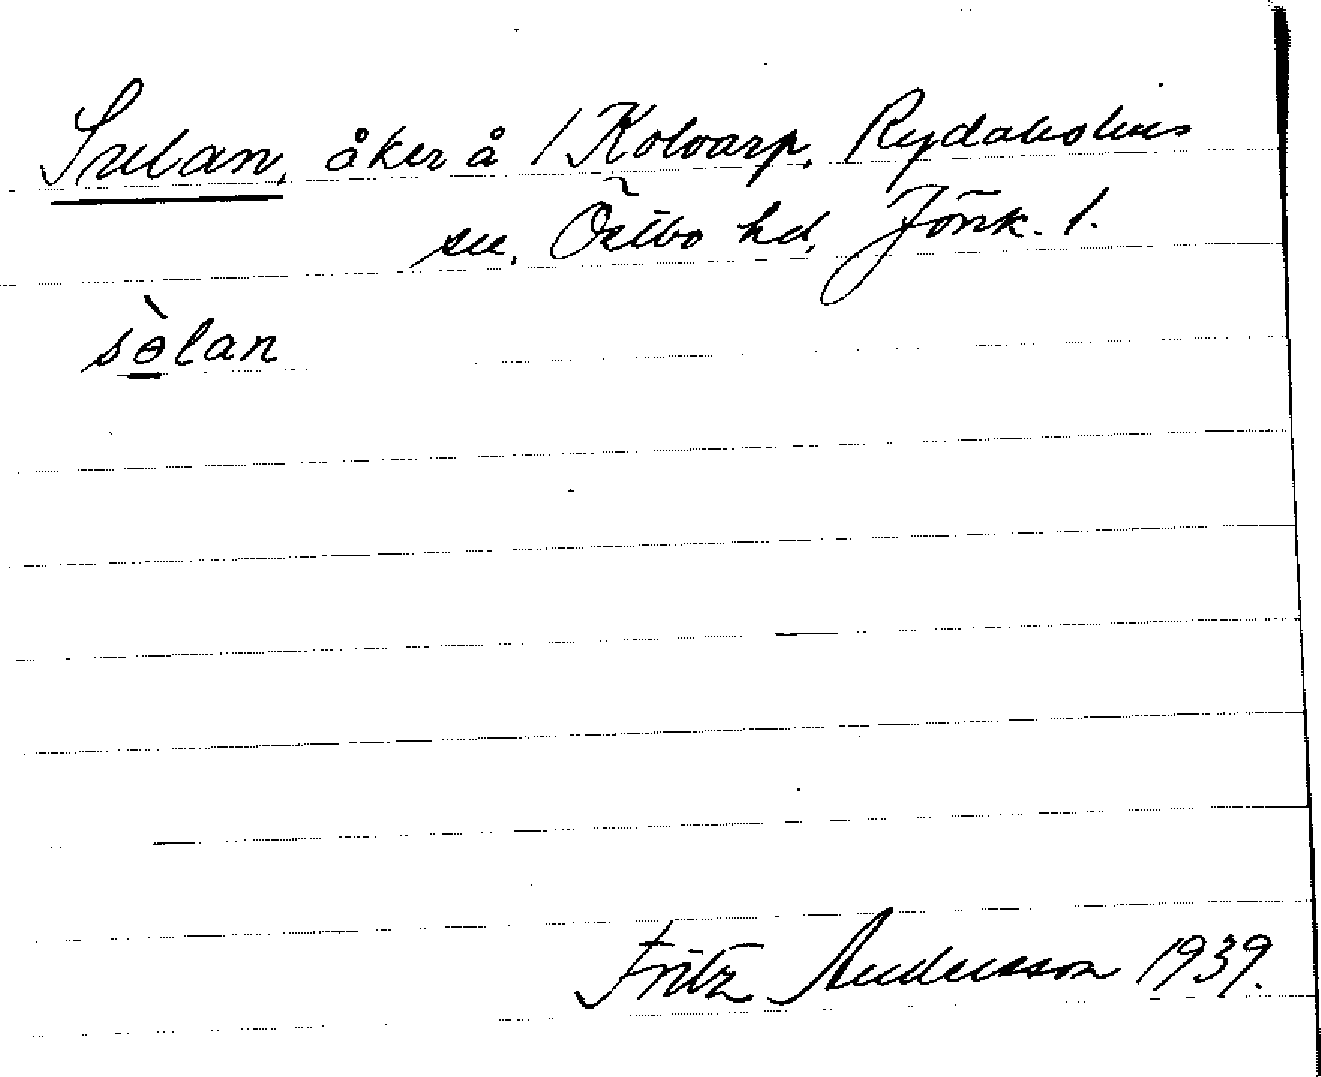 Sulan, åker å /Kolvarp, Rydaholms
sn, Östbo hd, Jönk. l.
sɵ̀lan
Fritz Andersson 1939.